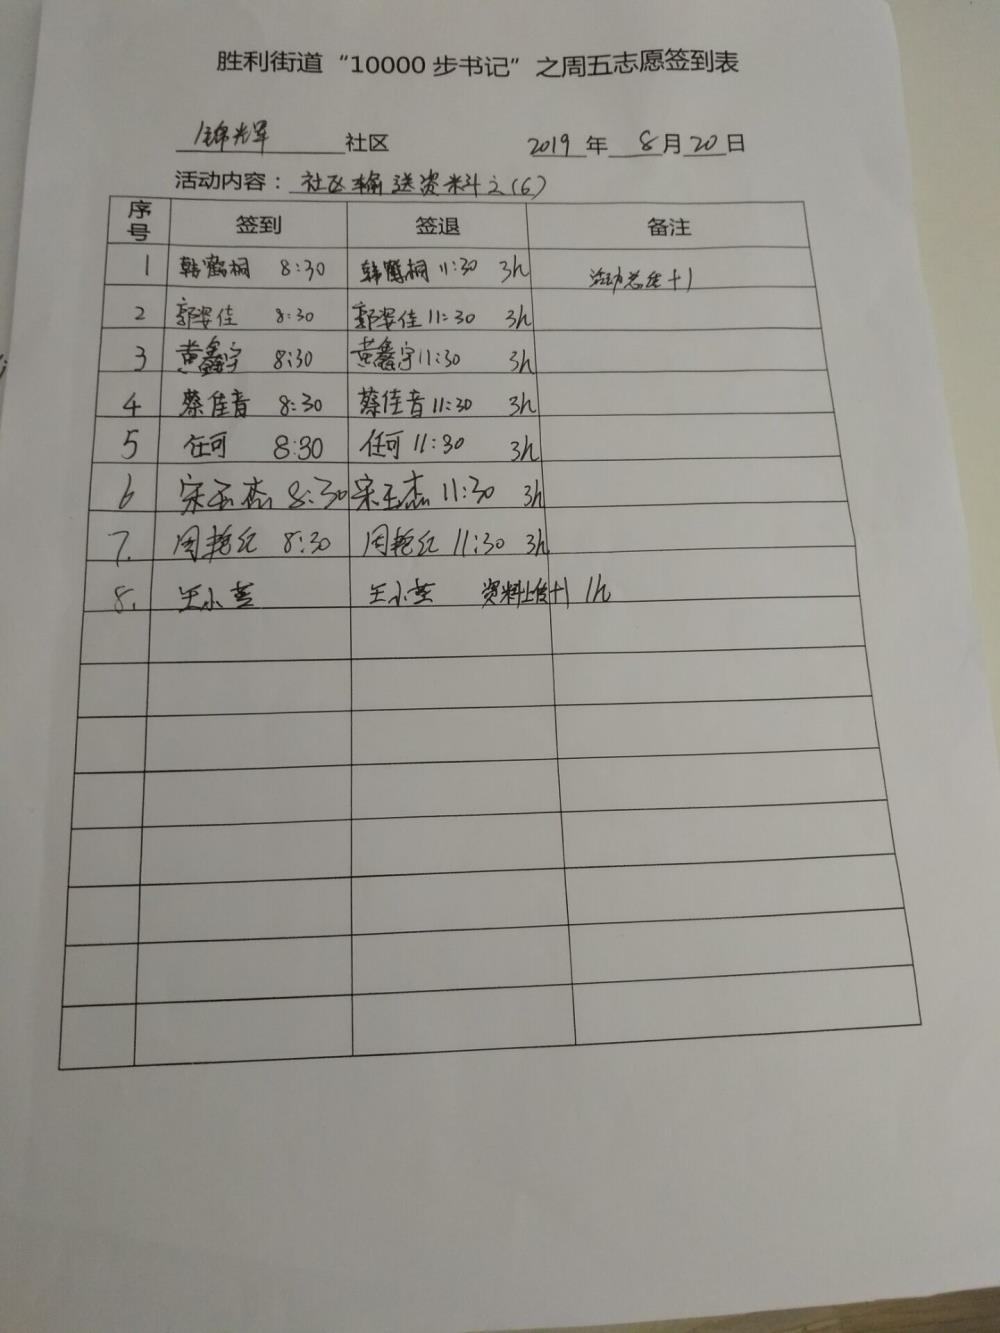 胜利街道“10000步书记”之周五志愿签到表
锦光军社区 2019年8月20日
活动内容：社区输送资料之(6)
序号 签到 签退 备注
1 韩鹤桐 8:30 韩鹤桐 11:30 3h 活动总结+1
2 郭姿佳 8:30 郭姿佳 11:30 3h
3 黄鑫宇 8:30 黄鑫宇 11:30 3h
4 蔡佳音 8:30 蔡佳音 11:30 3h
5 任可 8:30 任可 11:30 3h
6 宋玉杰 8:30 宋玉杰 11:30 3h
7. 周艳红 8:30 周艳红 11:30 3h
8. 王小 王小 资料上传+1 1h